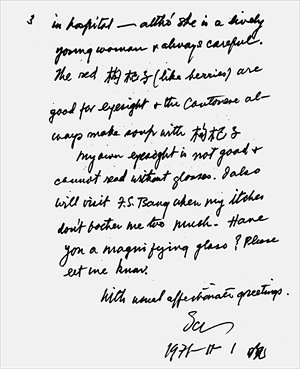 3
in hospital – altho' she is a lively
young woman & always careful.
The red 枸杞子 (like berries) are
good for eyesight & the Cantonese al-
ways make soup with 枸杞子
My own eyesight is not good &
cannot read without glasses. I also
will visit F.S. Tsang when my itches
don't bother me too much. Have
you a magnifying glass? Please
let me know.
With usual affectionate greetings.
1971-11-1